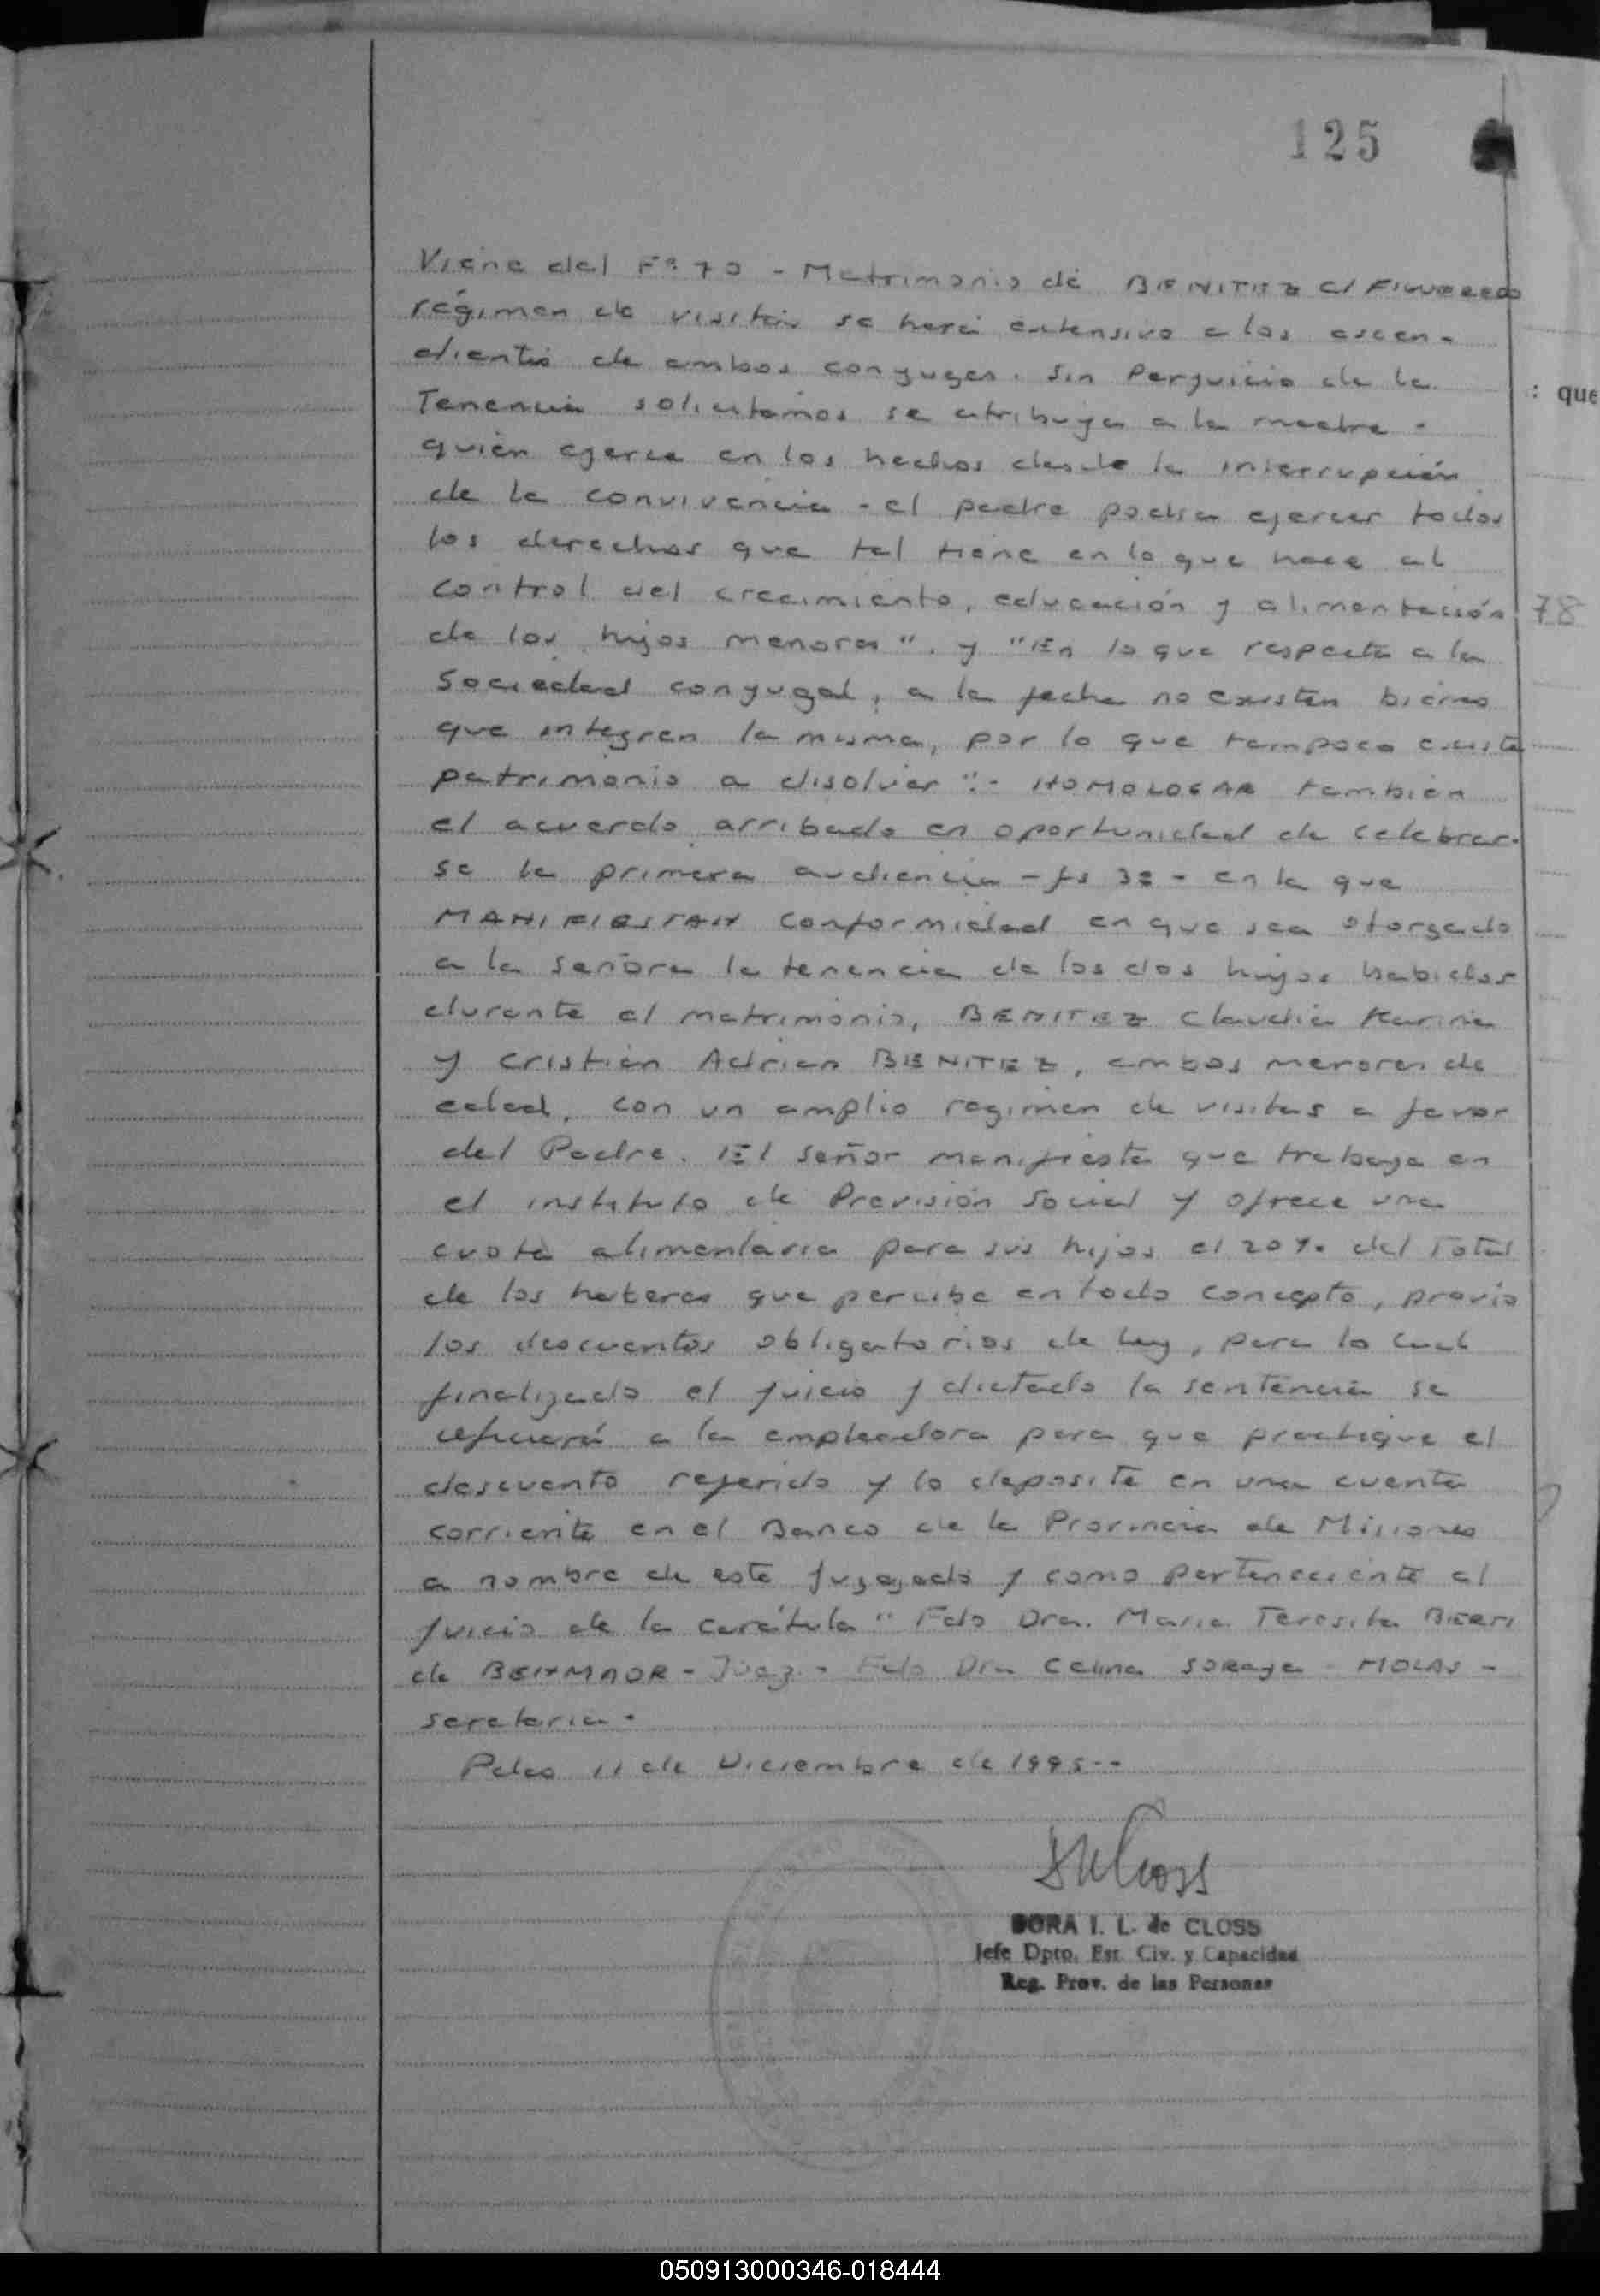 125
Viene del Fº 70 - Matrimonio de BENITEZ c/ FIGUEREDO
régimen de visitas se hará extensivo a los ascen-
dientes de ambos conyuges. Sin Perjuicio de la
: que
Tenencia solicitamos se atribuya a la madre -
quién ejerce en los hechos desde la interrupción
de la convivencia - el padre podrá ejercer todos
los derechos que tal tiene en lo que hace al
control del crecimiento, educación y alimentación
78
de los hijos menores". y "En lo que respecta a la
Sociedad conyugal, a la fecha no existen bienes
que integren la misma, por lo que tampoco existe
patrimonio a disolver".- HOMOLOGAR también
el acuerdo arribado en oportunidad de celebrar-
se la primera audiencia - fs - en la que
MANIFIESTAN conformidad en que sea otorgado
a la señora la tenencia de los dos hijos habidos
durante el matrimonio, BENITEZ Claudia Karina
y Cristián Adrian BENITEZ, ambos menores de
edad, con un amplio regimen de visitas a favor
del Padre. El señor manifiesta que trabaja en
el instituto de Previsión Social y ofrece una
cuota alimentaria para sus hijos el 20% del Total
de los haberes que percibe en todo concepto, previo
los descuentos obligatorios de ley, para lo cual
finalizado el juicio y dictado la sentencia se
oficiará a la empleadora para que practique el
descuento referido y lo deposite en una cuenta
corriente en el Banco de la Provincia de Misiones
a nombre de este Juzgado y como perteneciente al
juicio de la carátula" Fdo Dra. Maria Teresita
de BENMAOR - Juez - Fdo Dra Celina SORAya - MOLAS -
secretaria.
Pdas 11 de Diciembre de 1995--
DORA I. L. de CLOSS
Jefe Dpto. Est. Civ. y Capacidad
Reg. Prov. de las Personas
050913000346-018444